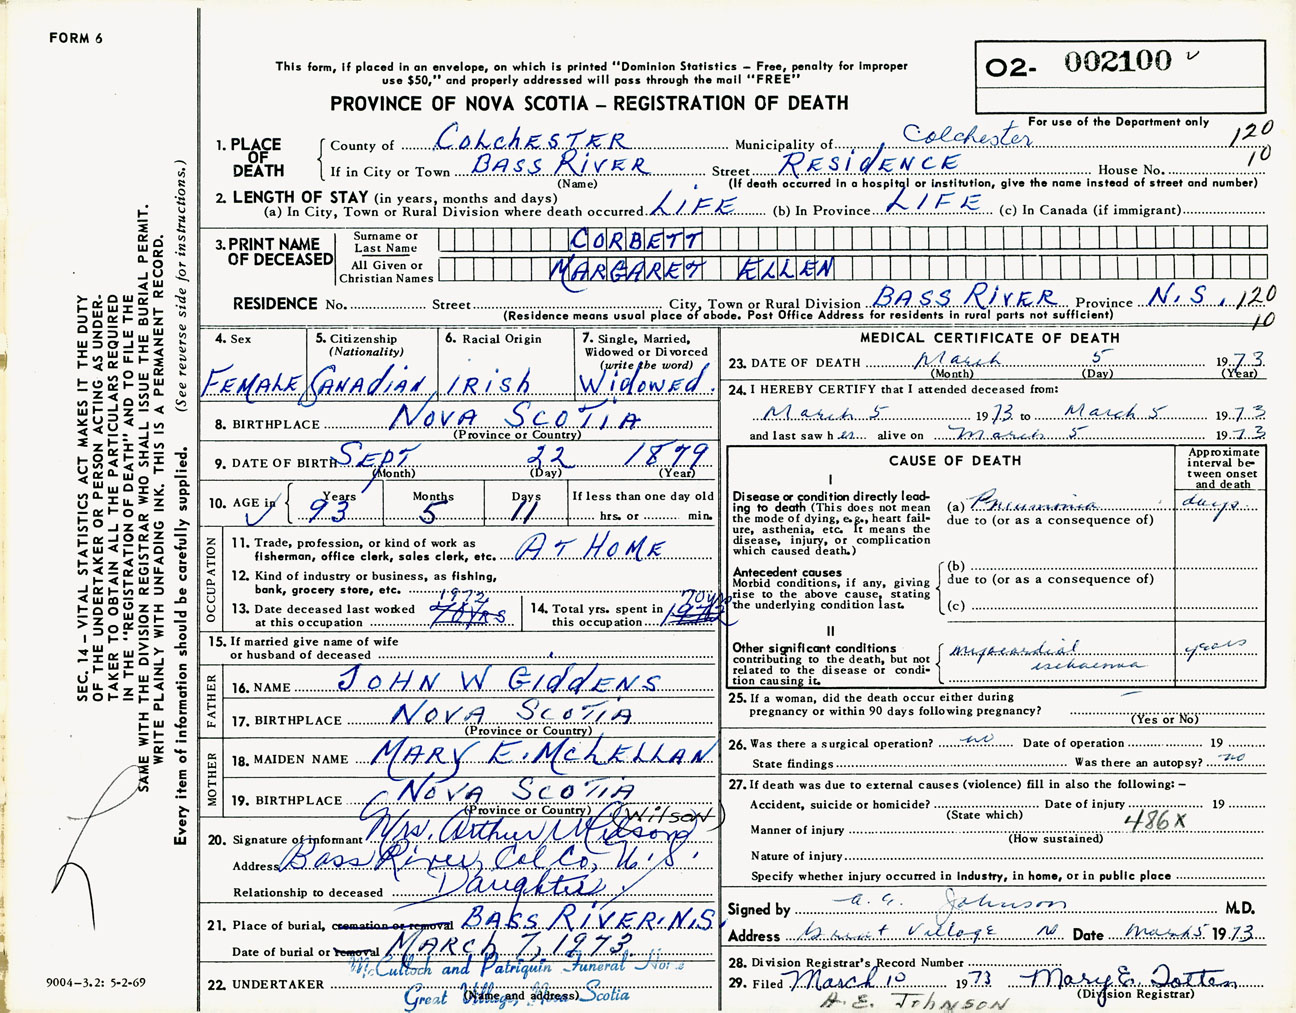 FORM 6
This form, if placed in an envelope, on which is printed "Dominion Statistics – Free, penalty for improper
use $50," and properly addressed will pass through the mail "FREE"
PROVINCE OF NOVA SCOTIA – REGISTRATION OF DEATH
02- 002100
For use of the Department only
1. PLACE OF DEATH
County of COLCHESTER Municipality of Colchester 120
If in City or Town BASS RIVER Street RESIDENCE House No. 10
(Name) (If death occurred in a hospital or institution, give the name instead of street and number)
2. LENGTH OF STAY (in years, months and days)
(a) In City, Town or Rural Division where death occurred LIFE (b) In Province LIFE (c) In Canada (if immigrant)
3. PRINT NAME OF DECEASED
Surname or Last Name CORBETT
All Given or Christian Names MARGARET ELLEN
RESIDENCE No. Street City, Town or Rural Division BASS RIVER Province N.S. 120
(Residence means usual place of abode. Post Office Address for residents in rural parts not sufficient) 10
4. Sex FEMALE
5. Citizenship (Nationality) CANADIAN
6. Racial Origin IRISH
7. Single, Married, Widowed or Divorced (write the word) WIDOWED.
8. BIRTHPLACE NOVA SCOTIA
(Province or Country)
9. DATE OF BIRTH SEPT 22 1879
(Month) (Day) (Year)
10. AGE in Years 93 Months 5 Days 11 If less than one day old hrs. or min.
OCCUPATION
11. Trade, profession, or kind of work as
fisherman, office clerk, sales clerk, etc. AT HOME
12. Kind of industry or business, as fishing,
bank, grocery store, etc.
13. Date deceased last worked at this occupation 1972 70 YRS
14. Total yrs. spent in this occupation 70 yrs 1972
15. If married give name of wife
or husband of deceased
FATHER
16. NAME JOHN W GIDDENS
17. BIRTHPLACE NOVA SCOTIA
(Province or Country)
MOTHER
18. MAIDEN NAME MARY E. MCLELLAN
19. BIRTHPLACE NOVA SCOTIA
(Province or Country) (Wilson)
20. Signature of informant Mrs. Arthur Wilson
Address Bass River, Col Co, N.S.
Relationship to deceased Daughter
21. Place of burial, cremation or removal BASS RIVER. N.S.
Date of burial or removal MARCH 7, 1973.
McCulloch and Patriquin Funeral Home
22. UNDERTAKER Great Village, Nova Scotia
(Name and address)
MEDICAL CERTIFICATE OF DEATH
23. DATE OF DEATH March 5 1973
(Month) (Day) (Year)
24. I HEREBY CERTIFY that I attended deceased from:
March 5 1973 to March 5 1973
and last saw her alive on March 5 1973
CAUSE OF DEATH
Approximate interval between onset and death
I
Disease or condition directly lead-
ing to death (This does not mean
the mode of dying, e.g., heart fail-
ure, asthenia, etc. It means the
disease, injury, or complication
which caused death.)
(a) Pneumonia days
due to (or as a consequence of)
Antecedent causes
Morbid conditions, if any, giving
rise to the above cause, stating
the underlying condition last.
(b)
due to (or as a consequence of)
(c)
II
Other significant conditions
contributing to the death, but not
related to the disease or condi-
tion causing it.
myocardial ischaemia years
25. If a woman, did the death occur either during
pregnancy or within 90 days following pregnancy? –
(Yes or No)
26. Was there a surgical operation? no Date of operation 19
State findings Was there an autopsy? no
27. If death was due to external causes (violence) fill in also the following: –
Accident, suicide or homicide? Date of injury 19
(State which)
Manner of injury 486X
(How sustained)
Nature of injury
Specify whether injury occurred in industry, in home, or in public place
Signed by Johnson M.D.
Address Great Village NS Date Mar 5 1973
28. Division Registrar's Record Number
29. Filed March 10 1973 Mary E. Totten
(Division Registrar)
A.E. JOHNSON
SEC. 14 – VITAL STATISTICS ACT MAKES IT THE DUTY
OF THE UNDERTAKER OR PERSON ACTING AS UNDER-
TAKER TO OBTAIN ALL THE PARTICULARS REQUIRED
IN THE "REGISTRATION OF DEATH" AND TO FILE THE
SAME WITH THE DIVISION REGISTRAR WHO SHALL ISSUE THE BURIAL PERMIT.
WRITE PLAINLY WITH UNFADING INK. THIS IS A PERMANENT RECORD.
Every item of information should be carefully supplied. (See reverse side for instructions.)
9004–3.2: 5-2-69